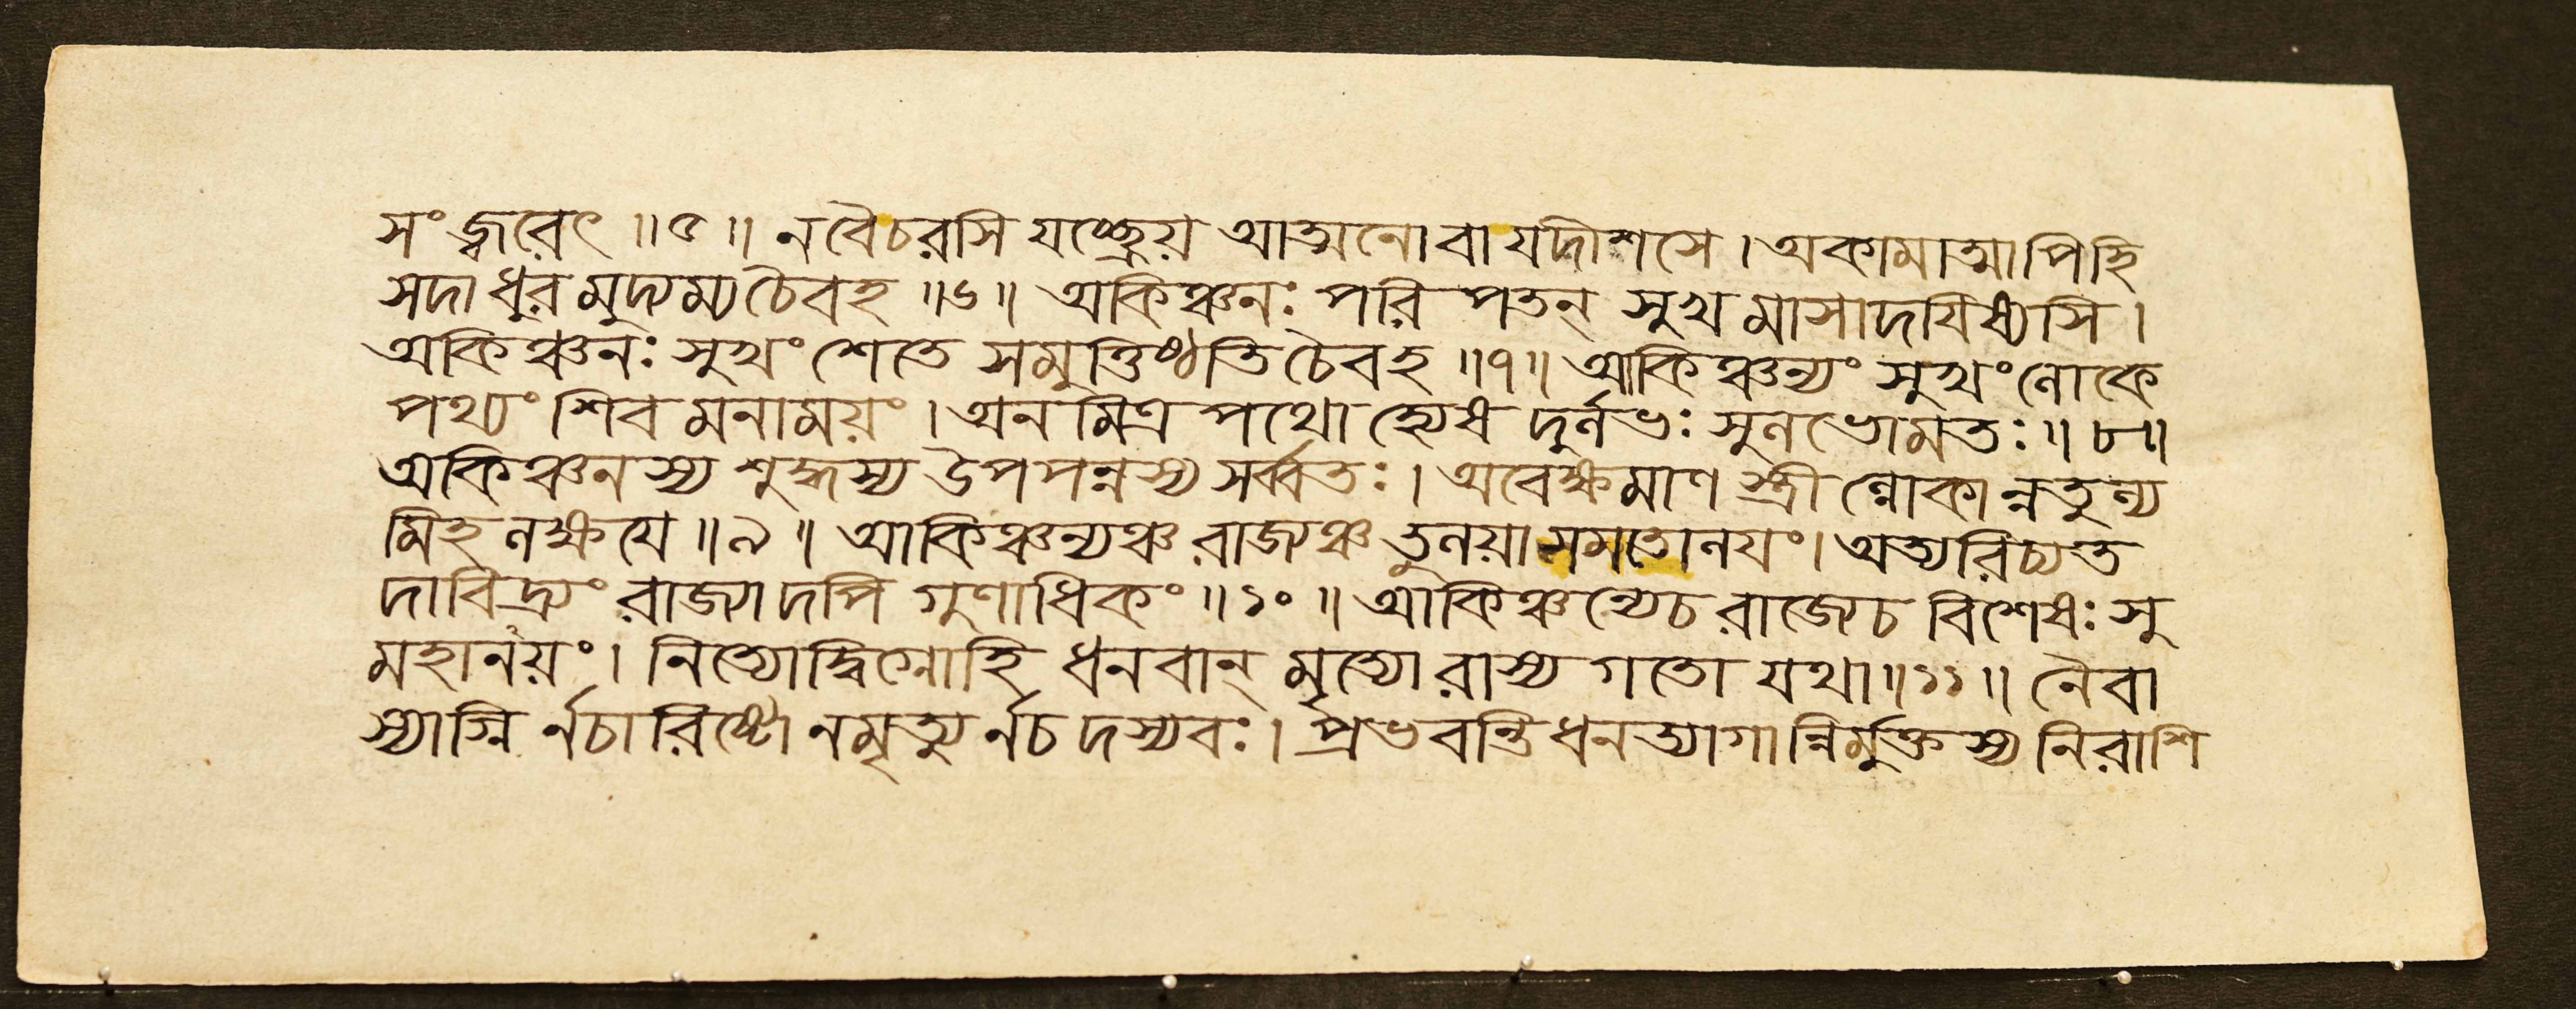 সংজ্বরেৎ ॥৫॥ ন বৈ চরসি যচ্ছ্রেয় আত্মনো বা যদীশসে । অকামাত্মাপি হি
সদা ধুরমুদ্যম্য চৈবহ ॥৬॥ অকিঞ্চনঃ পরিপতন্ সুখমাসাদয়িষ্যসি ।
অকিঞ্চনঃ সুখং শেতে সমুত্তিষ্ঠতি চৈবহ ॥৭॥ আকিঞ্চন্যং সুখং লোকে
পথ্যং শিবমনাময়ং । অনমিত্রপথো হ্যেষ দুর্লভঃ সুলভো মতঃ ॥৮॥
অকিঞ্চনস্য শুদ্ধস্য উপপন্নস্য সর্ব্বতঃ । অবেক্ষমাণস্ত্রীল্লোকান্নতুল্য
মিহ লক্ষয়ে ॥৯॥ আকিঞ্চন্যঞ্চ রাজ্যঞ্চ তুলয়া সমতোলয়ং । অত্যরিচ্যত
দারিদ্র্যং রাজ্যাদপি গুণাধিকং ॥১০॥ আকিঞ্চন্যে চ রাজ্যে চ বিশেষঃ সু
মহানয়ং । নিত্যোদ্বিগ্নো হি ধনবান্ মৃত্যোরাস্য গতো যথা ॥১১॥ নৈবা
স্যাগ্নির্নচারিষ্টো নমৃত্যুর্নচ দস্যবঃ । প্রভবন্তি ধনত্যাগান্নির্মুক্তস্য নিরাশি